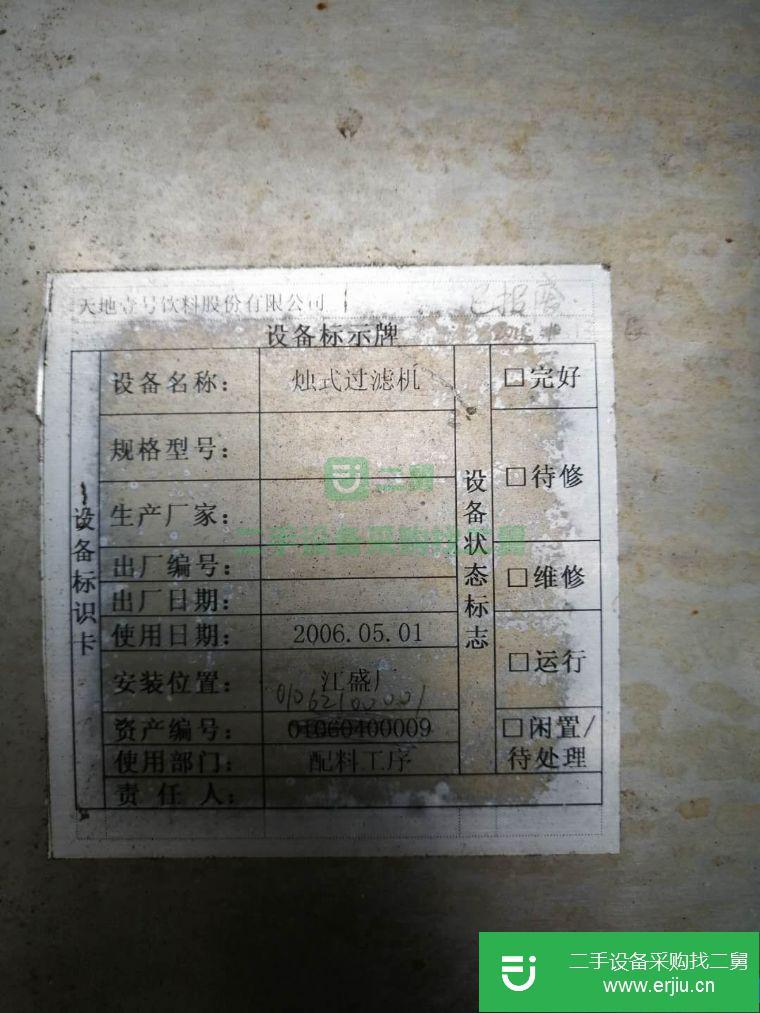 天地壹号饮料股份有限公司
已报废
设备标示牌
设备标识卡
设备名称： 烛式过滤机
规格型号：
生产厂家：
出厂编号：
出厂日期：
使用日期： 2006.05.01
安装位置： 江盛厂
01062100001
资产编号： 01060400009
使用部门： 配料工序
责任人：
设备状态标志
□完好
□待修
□维修
□运行
□闲置/
待处理
二舅
二手设备采购找二舅
二手设备采购找二舅
www.erjiu.cn